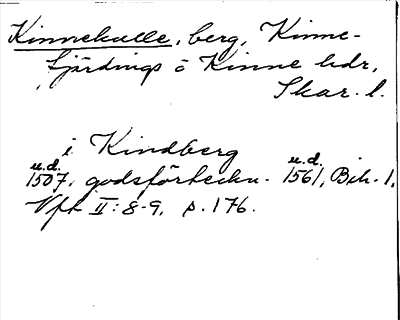 Kinnekulle, berg, Kinne-
fjärdings o Kinne hdr,
Skar. l.
i Kindberg
u.d. u.d.
1507, godsförteckn. 1561, Bih. 1,
Vft II: 8-9, p. 176.